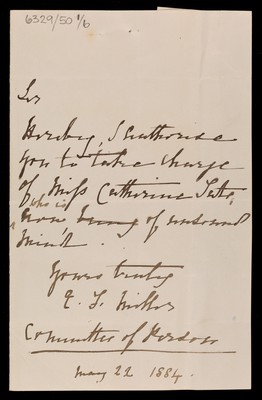 6329/50 1/6
Sir
Hereby, I Authorise
you to take charge
of Miss Catherine
who is
now being of unsound
mind.
Yours truly
Committee of Person
May 22 1884.